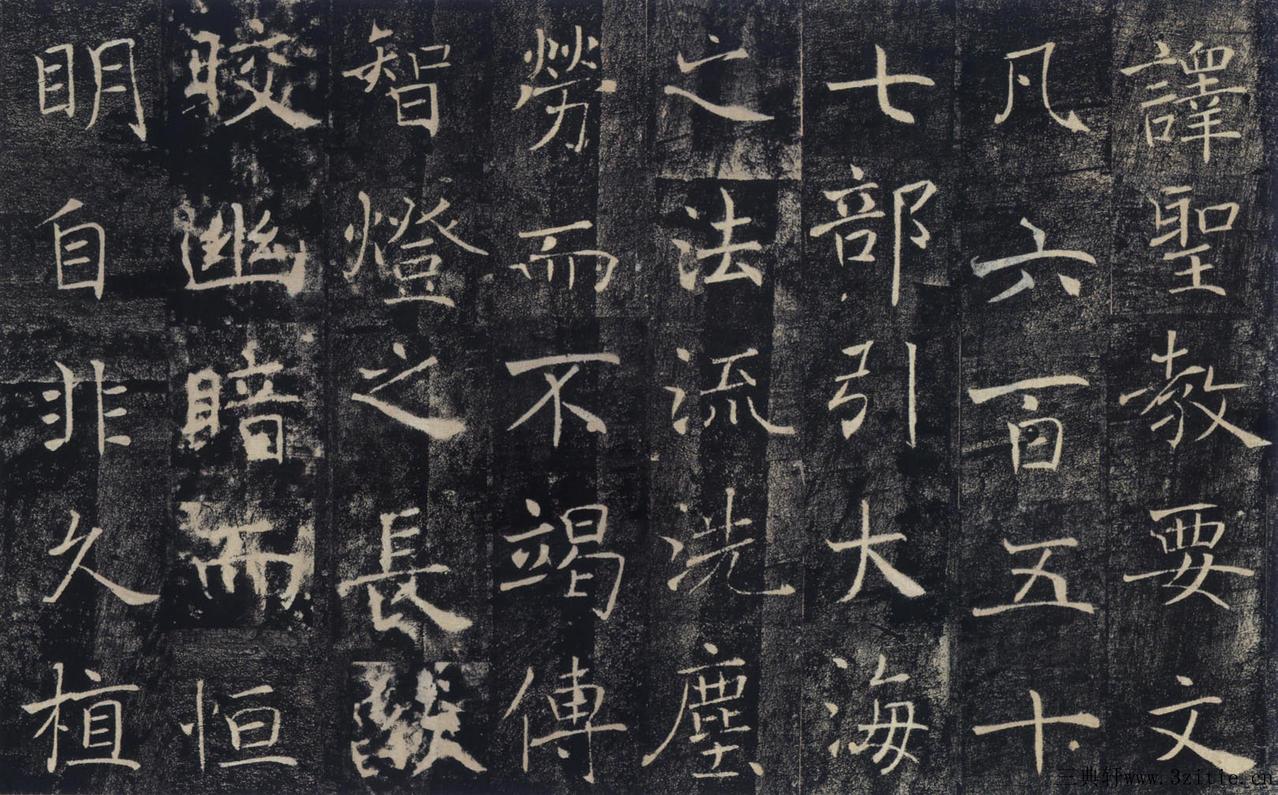 譯聖教要文
凡六百五十
七部引大海
之法流洗塵
勞而不竭傳
智燈之長燄
皎幽暗而恒
明自非久植
三典轩www.3zitie.cn